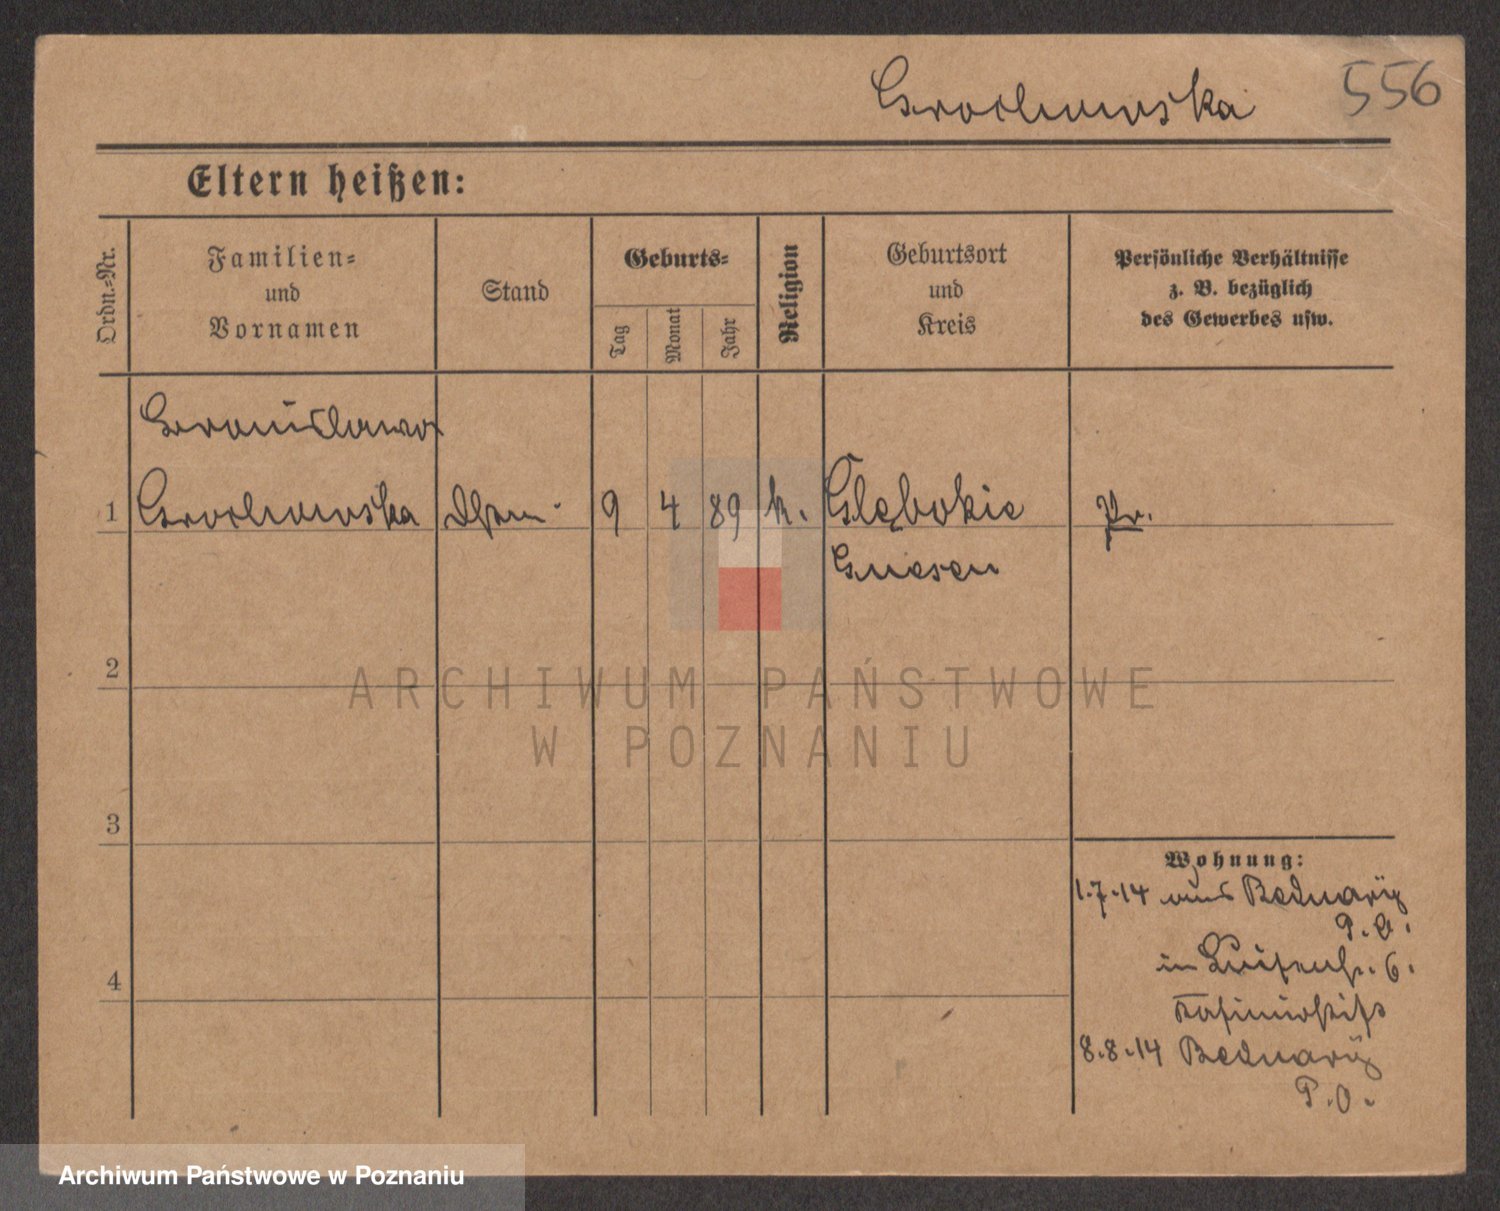 Grochowska 556
Eltern heißen:
Ordn.-Nr.
Familien-
und
Vornamen
Stand
Geburts-
Tag
Monat
Jahr
Religion
Geburtsort
und
Kreis
Persönliche Verhältnisse
z. B. bezüglich
des Gewerbes usw.
Bronislawa
1 Grochowska 9 4 89 k. Głębokie Pr.
Gnesen
2
ARCHIWUM PAŃSTWOWE
W POZNANIU
3
Wohnung:
1.7.14 aus Bednary
P.O.
in Luisenstr. 6.
4
8.8.14 Bednary
P.O.
Archiwum Państwowe w Poznaniu